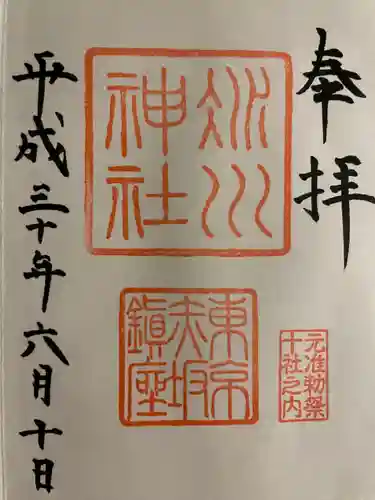 奉拝
氷川
神社
東京
赤坂
鎮座
元准勅祭
十社之内
平成三十年六月十日